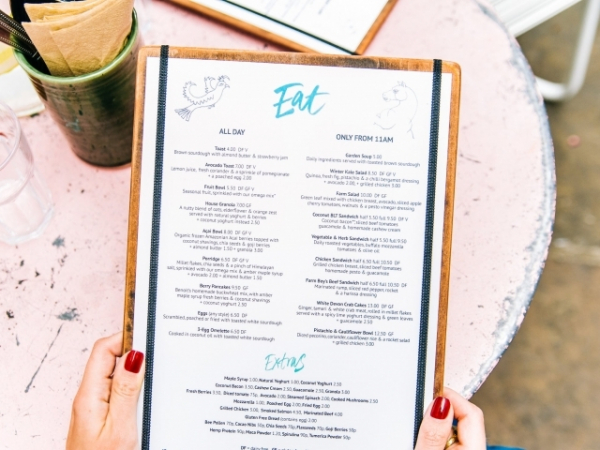 Eat
ALL DAY
Toast 4.50 DF V
Brown sourdough with almond butter & strawberry jam
Avocado Toast 7.00 DF V
Lemon juice, fresh coriander & a sprinkle of pomegranate
+ a poached egg 2.00
Fruit Bowl 5.50 DF V
Seasonal fruit, sprinkled with our omega mix
House Granola 7.00 GF
A nutty blend of oats, elderflower & orange zest
served with natural yoghurt & berries
+ coconut yoghurt 2.50
Açai Bowl 8.00 DF V
Organic Rosan Amazonian Acai berries topped with
coconut shavings, chia seeds & goji berries
+ almond butter 1.50 + granola 3.00
Porridge 6.50 DF V
Millet flakes, chia seeds & a pinch of Himalayan
salt, sprinkled with our omega mix & amber maple syrup
+ avocado 2.00 + almond butter 1.50
Berry Pancakes 9.00 GF
Bernie's homemade buckwheat mix, with amber
maple syrup fresh berries & coconut shavings
+ coconut yoghurt 2.50
Eggs (any style) 6.50 DF
Scrambled, poached or fried with toasted white sourdough
3-Egg Omelette 6.50 DF
Cooked in coconut oil with toasted white sourdough
ONLY FROM 11AM
Garden Soup 5.00
Daily ingredients served with toasted brown sourdough
Winter Kale Salad 9.50 DF GF V
Quinoa, fresh fig, pistachio & a chilli bergamot dressing
+ avocado 2.00 + grilled chicken 3.00
Farm Salad 10.00 DF GF
Green beet mixed with chicken breast, avocado, sliced apple
cherry tomatoes, walnuts & a pesto vinegar dressing
Coconut BLT Sandwich half 5.50 full 9.50 DF V
Coconut bacon, sliced beef tomatoes
guacamole & homemade cashew cream
Vegetable & Herb Sandwich half 5.50 full 9.50
Daily roasted vegetables, buffalo mozzarella
tomatoes & olive oil
Chicken Sandwich half 6.50 full 10.50 DF
Grilled chicken breast, sliced beef tomatoes
homemade pesto & guacamole
Farm Boy's Beef Sandwich half 6.50 full 10.50 DF
Marinated rump, sliced red pepper rocket
& a harissa dressing
White Devon Crab Cakes 13.00
Ginger lemon & white crab meat, rolled in millet flakes
served with a spicy lime yoghurt dressing & green leaves
+ guacamole 2.50
Pistachio & Cauliflower Bowl 12.50 GF
Sliced pecorino, cauliflower rice & a rocket salad
+ grilled chicken 3.00
Extras
Maple Syrup 1.50, Natural Yoghurt 1.50, Coconut Yoghurt 2.50
Coconut Bacon 2.50, Cashew Cream 2.50, Guacamole 2.50, Granola 3.00
Fresh Berries 3.50, Diced tomato 75p, Avocado 2.00, Steamed Spinach 2.00, Grilled Mushrooms 2.50
Mozzarella 2.00, Poached Egg 2.00, Fried Egg 2.00
Grilled Chicken 3.00, Smoked Salmon 4.50, Marinated Beef 4.00
Gluten Free Bread (portion) 2.00
Bee Pollen 70p, Cacao Nibs 50p, Chia Seeds 70p, Flaxseeds 70p, Goji Berries 50p
Hemp Protein 90p, Maca Powder 1.20, Spirulina 90p, Turmeric Powder 90p